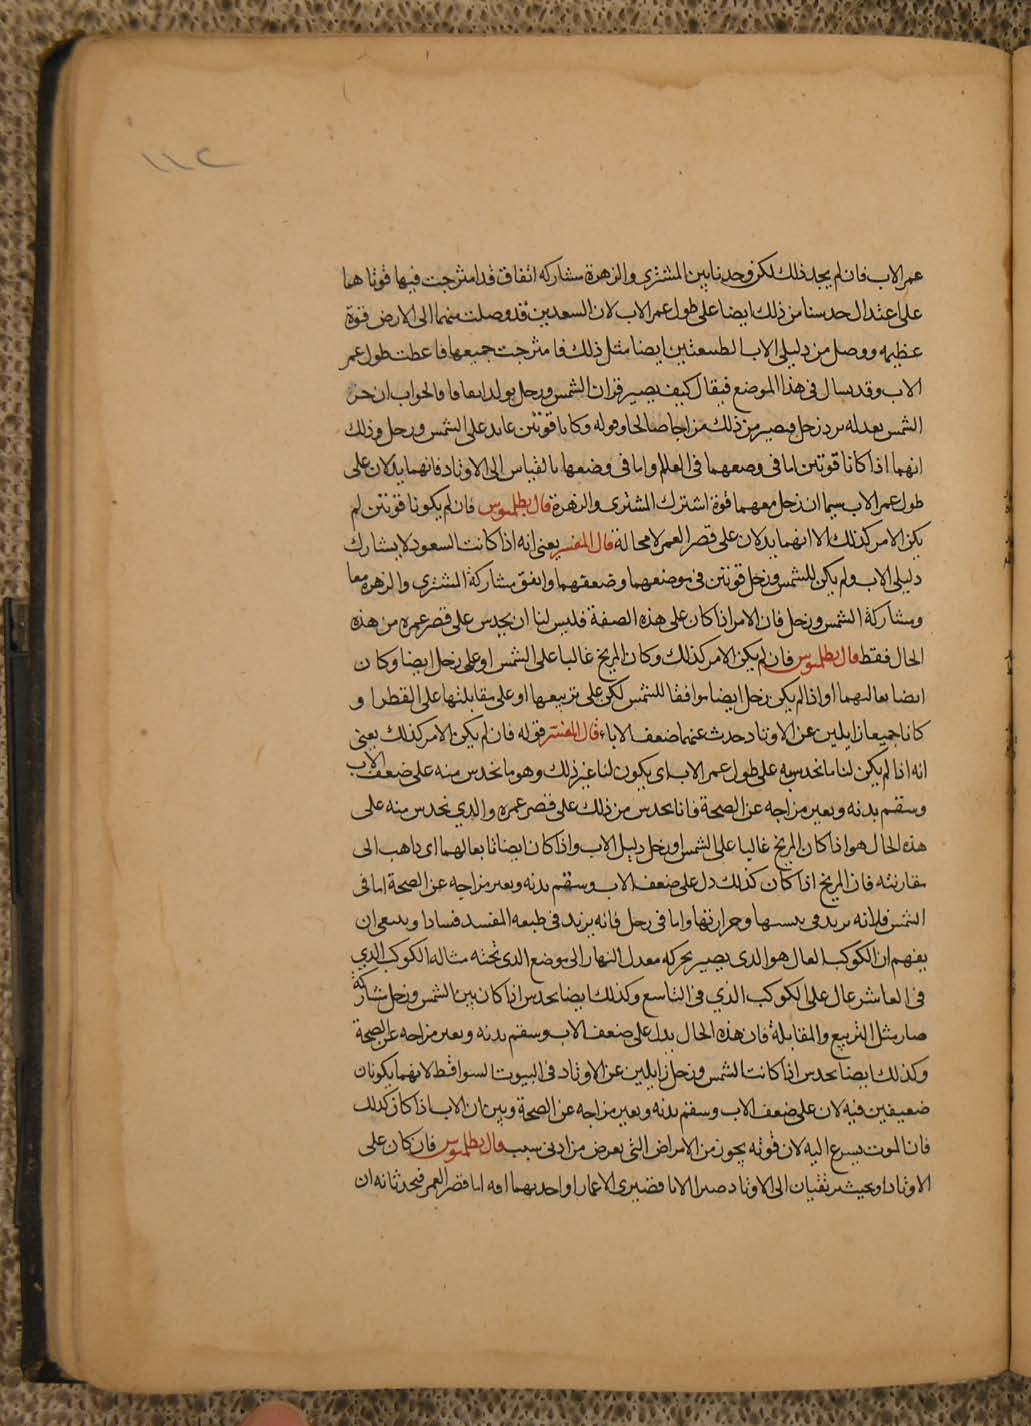 ١١٢
عمر الاب فان لم يجد ذلك لكن وجدنا بين المشتري والزهرة مشاركه اتفاق قد امتزجت فيها قوتاهما
على اعتدال حدسنا من ذلك ايضا على طول عمر الاب لان السعدين قد وصلت منهما الى الارض قوة
عظيمه ووصل من دليلي الاب الطبيعتين ايضا مثل ذلك فامتزجت جميعها فاعطت طول عمر
الاب وقد يسال في هذا الموضع فيقال كيف يصير قران الشمس وزحل يولد اتفاقا والجواب ان حر
الشمس يعدله برد زحل فيصير من ذلك مزاجا صالحا وقوله وكانا قويين عايد على الشمس وزحل وذلك
انهما اذا كانا قويين اما في وضعهما في العالم واما في وضعها بالقياس الى الاوتاد فانهما يدلان على
طول عمر الاب سيما ان دخل معهما قوة اشتراك المشتري والزهرة قال بطلميوس فان لم يكونا قويين لم
يكن الامر كذلك الا انهما يدلان على قصر العمر لا محالة قال المفسر يعني انه اذا كانت السعود لا يشارك
دليلي الاب ولم يكن للشمس وزحل قويين في موضعهما وضعفهما واتفق مشاركة المشتري والزهره معا
ومشاركة الشمس وزحل فان الامر اذا كان على هذه الصفة فليس لنا ان نحدس على قصر عمره من هذه
الحال فقط قال بطلميوس فان لم يكن الامر كذلك وكان المريخ غالبا على الشمس او على زحل ايضا وكان
ايضا تعاليهما او اذا لم يكن زحل ايضا موافقا للشمس لكن على تربيعها او على مقابلتها على القطر او
كانا جميعا زايلين عن الاوتاد حدث عنهما ضعف الاباء قال المفسر قوله فان لم يكن الامر كذلك يعني
انه اذا لم يكن لنا ما نحدس به على طول عمر الاب اي يكون لنا غير ذلك وهو ما نحدس منه على ضعف الاب
وسقم بدنه وتغير مزاجه عن الصحة فانا نحدس من ذلك على قصر عمره والذي نحدس منه على
هذه الحال هو اذا كان المريخ غاليا على الشمس او زحل دليل الاب واذا كان ايضا تابعا لهما اي ذاهب الى
مقارنته فان المريخ اذا كان كذلك دل على ضعف الاب وسقم بدنه وتغير مزاجه عن الصحة اما في
الشمس فلانه يزيد في يبسها وحرارتها واما في زحل فانه يزيد في طبعه المفسد فسادا وينبغي ان
يفهم ان الكوكب العال هو الذي يصير بحركه معدل النهار الى موضع الذي تحته مثاله الكوكب الذي
في العاشر عال على الكوكب الذي في التاسع وكذلك ايضا نحدس اذا كان بين الشمس وزحل مشاركة
صار مثل التربيع والمقابلة فان هذه الحال يدل على ضعف الاب وسقم بدنه وتغير مزاجه عن الصحة
وكذلك ايضا نحدس اذا كانت الشمس وزحل زايلين عن الاوتاد في البيوت السواقط لانهما يكونان
ضعيفين فيدلان على ضعف الاب وسقم بدنه وتغير مزاجه عن الصحة وبين ان الاب اذا كان كذلك
فان الموت يسرع اليه لان قوته يخور من الامراض التي تعرض من ادنى سبب قال بطلميوس فان كان على
الاوتاد او بحيث يرتقيان الى الاوتاد صيرا الابا قصيري الاعمار او احدثا بهما افه اما قصر العمر فيحدثانه ان